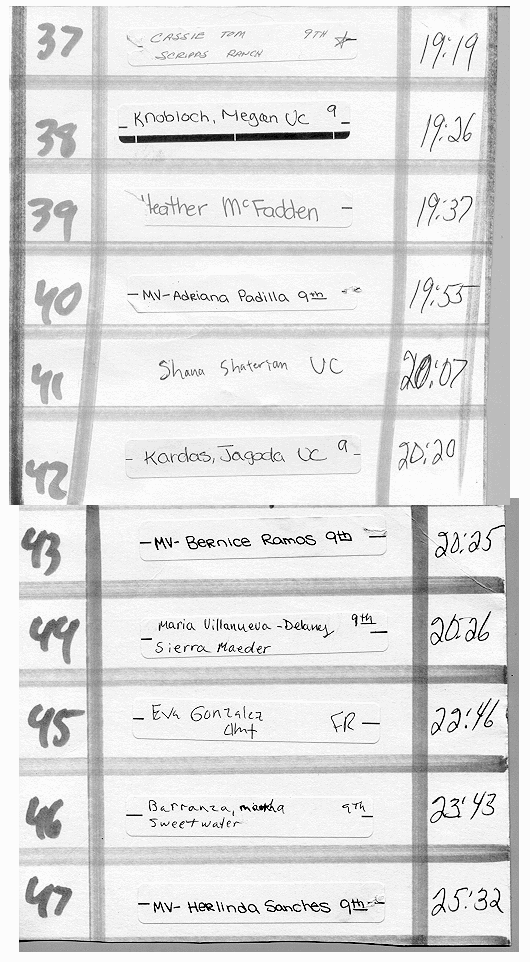 37 CASSIE TOM 9TH 19:19
SCRIPPS RANCH
38 Knobloch, Megan UC 9 19:26
39 Heather McFadden 19:37
40 MV-Adriana Padilla 9th 19:55
41 Shana Shaterian UC 20:07
42 Kardas, Jagoda UC 9 20:20
43 MV- Bernice Ramos 9th 20:25
44 Maria Villanueva - Delaney 9th 20:26
Sierra Maeder
45 Eva Gonzalez FR 22:46
46 Barranza, martha 9TH 23:43
Sweetwater
47 MV- Herlinda Sanches 9th 25:32